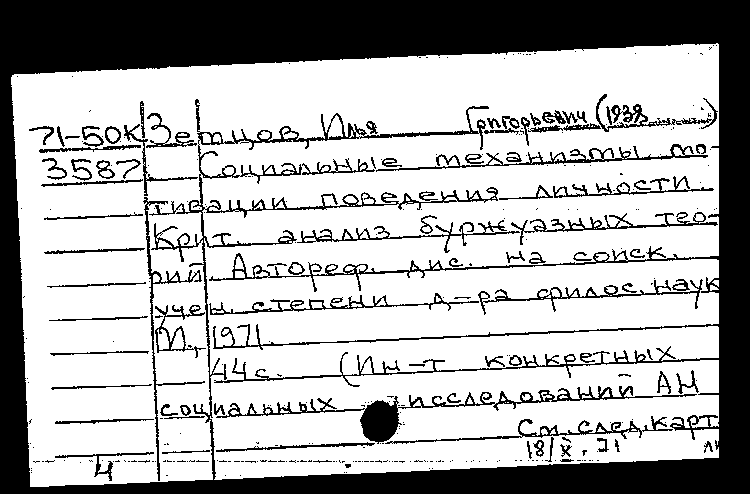 71-50К Земцов, Илья Григорьевич (1938
3587 Социальные механизмы мо-
тивации поведения личности.
Крит. анализ буржуазных тео-
рий. Автореф. дис. на соиск.
учен. степени д-ра филос. наук
М., 1971.
44с. (Ин-т конкретных
социальных исследований АН
См. след. карт.
18/X. 71
4